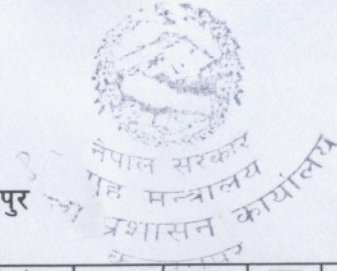 नेपाल सरकार
गृह मन्त्रालय
प्रशासन कार्यालय
पुर